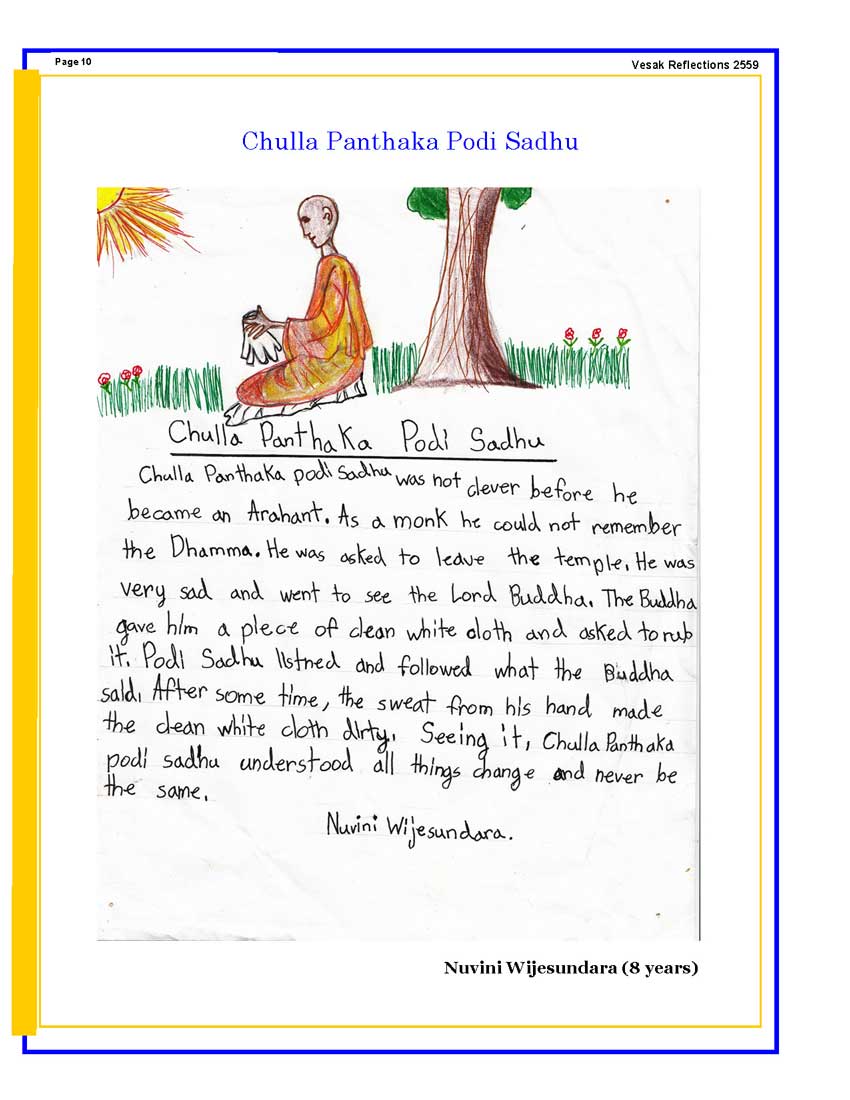 Page 10
Vesak Reflections 2559
Chulla Panthaka Podi Sadhu
Chulla Panthaka Podi Sadhu
Chulla Panthaka podi Sadhu was not clever before he
became an Arahant. As a monk he could not remember
the Dhamma. He was asked to leave the temple. He was
very sad and went to see the Lord Buddha. The Buddha
gave him a piece of clean white cloth and asked to rub
it. Podi Sadhu listned and followed what the Buddha
said. After some time, the sweat from his hand made
the clean white cloth dirty. Seeing it, Chulla Panthaka
podi sadhu understood all things change and never be
the same.
Nuvini Wijesundara.
Nuvini Wijesundara (8 years)